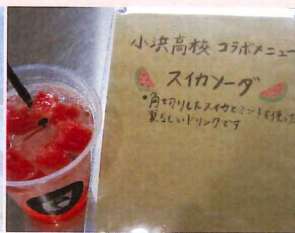 小浜高校 コラボメニュー
スイカソーダ
・角切りしたスイカとミントを使った
夏らしいドリンクです